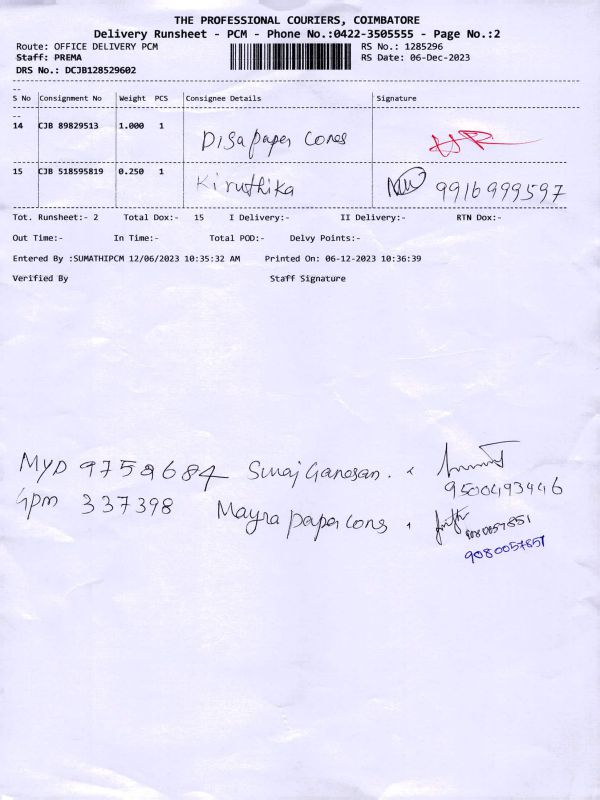 THE PROFESSIONAL COURIERS, COIMBATORE
Delivery Runsheet - PCM - Phone No.:0422-3505555 - Page No.:2
Route: OFFICE DELIVERY PCM RS No.: 1285296
Staff: PREMA RS Date: 06-Dec-2023
DRS No.: DCJB128529602
S No Consignment No Weight PCS Consignee Details Signature
14 CJB 89829513 1.000 1 Disa paper Cones
15 CJB 518595819 0.250 1 Kiruthika 9916999597
Tot. Runsheet:- 2 Total Dox:- 15 I Delivery:- II Delivery:- RTN Dox:-
Out Time:- In Time:- Total POD:- Delvy Points:-
Entered By :SUMATHIPCM 12/06/2023 10:35:32 AM Printed On: 06-12-2023 10:36:39
Verified By Staff Signature
MYD 9759684 Suraj Ganesan.
9500493446
Gpm 337398 Mayra paper cons
9080057851
9080057851